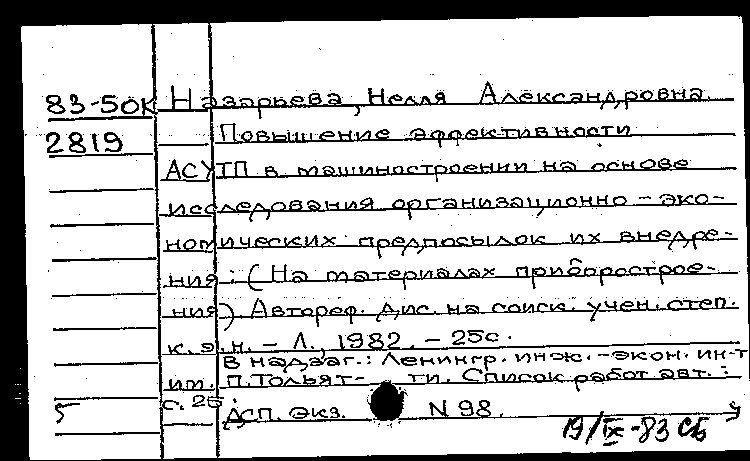 83-50К Назарьева, Нелля Александровна.
2819 Повышение эффективности
АСУТП в машиностроении на основе
исследования организационно-эко-
номических предпосылок их внедре-
ния: (На материалах приборострое-
ния). Автореф. дис. на соиск. учен. степ.
к.э.н. - Л., 1982. - 25с.
В надзаг.: Ленингр. инж.-экон. ин-т
им. П. Тольят- ти. Список работ авт.:
5 с. 25 ДСП. Экз. N 98.
19/IX-83 СБ